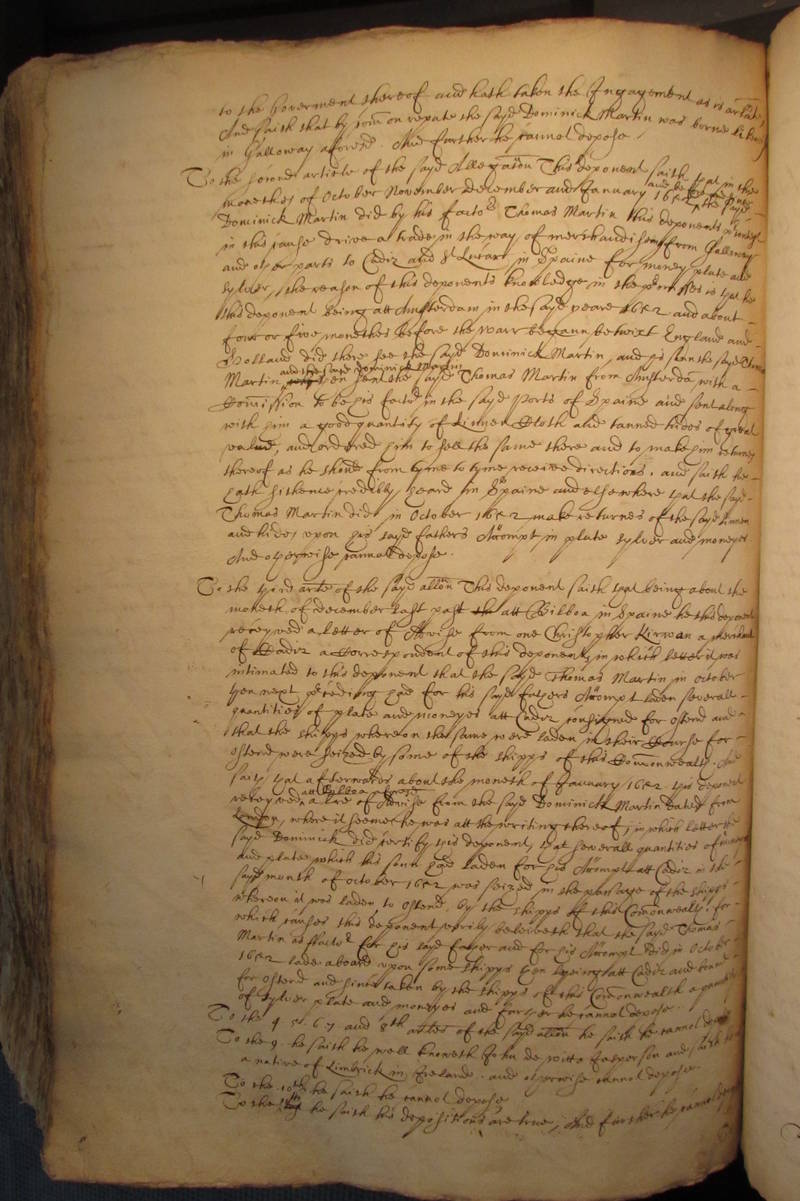 to the Goverment thereof and hath taken the Ingagement as is arlate,
And saith that by com̄on repute the sayd Dominick Martin was borne
in Galloway aforesd. And further he cannot depose
To the second article of the sayd Allegation This deponent saith that in the
monethes of October November december and January 1652 the sayd
Dominick Martin did by his factor Thomas Martin this deponents
in this cause drive a trade in the way of merchandising from Galloway
and other parts to Cadiz and St Lucars in Spaine for money plate and
sylver, the reason of this deponents knowledge in the premisses is that he
this deponent being att Amsterdam in the sayd yeare 1652 and about
four or five monethes before the warr begann betwixt England and
Holland did there see the sayd Dominick Martin, and his sonn the sayd Thomas
Martin and the sayd Dominick Martin then sent the sayd Thomas Martin from Amsterdā with a
Com̄ission to be his factor in the sayd ports of Spaine and sent along
with him a good quantity of Linnen Cloth and tanned hides of great
value, and ordered him to sell the same there and to make him returnes
thereof as he should from tyme to tyme receive directions. and saith he
hath sithence credibly heard in Spaine and elsewhere that the sayd
Thomas Martin did in October 1652 make returnes of the sayd linnen
and hides upon his sayd fathers Accompt in plate sylver and moneyes
And otherwise cannot depose.
To the third arte of the sayd allon This deponent saith that being about the
moneth of december last past att Bilboa in Spaine he this deponent
receyved a letter of Advise from one Christopher Kirwan a merchant
of Cadiz a Correspondent of this deponents in which letter it was
intimated to this deponent that the sayd Thomas Martin in october
then next preceding had for his sayd fathers Accompt laden severall
quantities of plate and moneyes att Cadiz consigned for ostend and
that the shipps whereon the same were laden in their Course for
ostend were seized by some of the shipps of this Com̄onwealth. And
saith that afterwards about the moneth of January 1652 this deponent
receyved att Bilboa a lre of Advise from the sayd Dominick Martin dated from
London, where it seemes he was att the writing thereof, in which letter the
sayd Dominick did certify this deponent, that severall quantities of
and plate which his sonn had laden for his Accompt att Cadiz in the
sayd month of october 1652 was seized in the passage of the shipps
whereon it was laden to ostend, by the shipps of this Com̄onwealth, for
which causes this deponent verily beleiveth that the sayd Thomas
Martin as factor for his sayd father and for his Accompt did in October
1652 lade aboard upon some shipps then lyeing att Cadiz and bound
for ostend and since taken by the shipps of this Com̄onwealth a
of sylver plate and moneyes and further he cannot depose.
To the 4 5 6 7 and 8th artes of the sayd allon he saith he cannot depose
To the 9. he saith he well knoweth John de witte Jasperson and saith
a native of Limbrick in Ireland. and otherwise cannot depose.
To the 10th he saith he cannot depose
To the he saith his depositions are true, And further he cannot